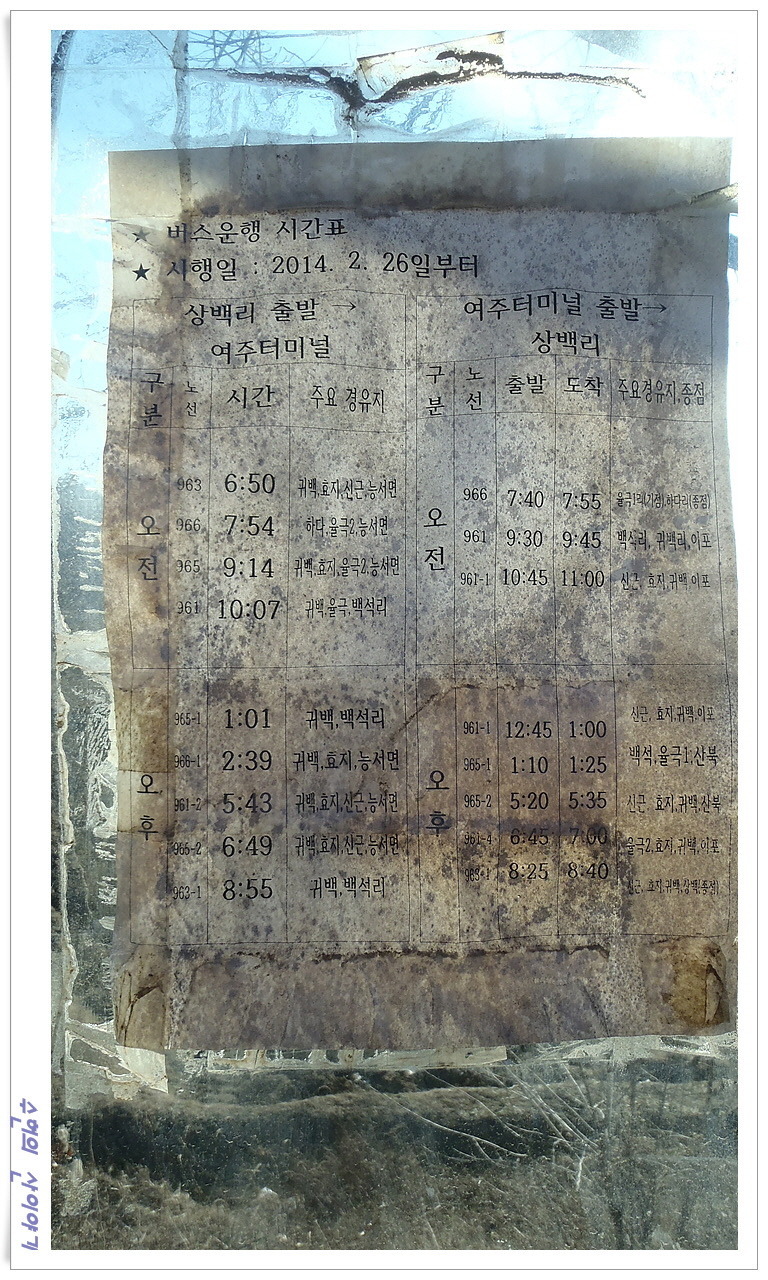 ★ 버스운행 시간표
★ 시행일 : 2014. 2. 26일부터
상백리 출발 →
여주터미널
구분 노선 시간 주요 경유지
오전
963 6:50 귀백,효지,신근,능서면
966 7:54 하다,율극2,능서면
965 9:14 귀백,효지,율극2,능서면
961 10:07 귀백,율극,백석리
오후
965-1 1:01 귀백,백석리
966-1 2:39 귀백,효지,능서면
961-2 5:43 귀백,효지,신근,능서면
965-2 6:49 귀백,효지,신근,능서면
963-1 8:55 귀백,백석리
여주터미널 출발→
상백리
구분 노선 출발 도착 주요경유지,종점
오전
966 7:40 7:55 율극1리(기점),하다리(종점)
961 9:30 9:45 백석리, 귀백리,이포
961-1 10:45 11:00 신근, 효지,귀백,이포
오후
961-1 12:45 1:00 신근, 효지,귀백,이포
965-1 1:10 1:25 백석,율극1,산북
965-2 5:20 5:35 신근, 효지,귀백,산북
961-4 6:45 7:00 율극2,효지,귀백,이포
8:25 8:40 신근, 효지,귀백,상백(종점)
수원의 산이야기